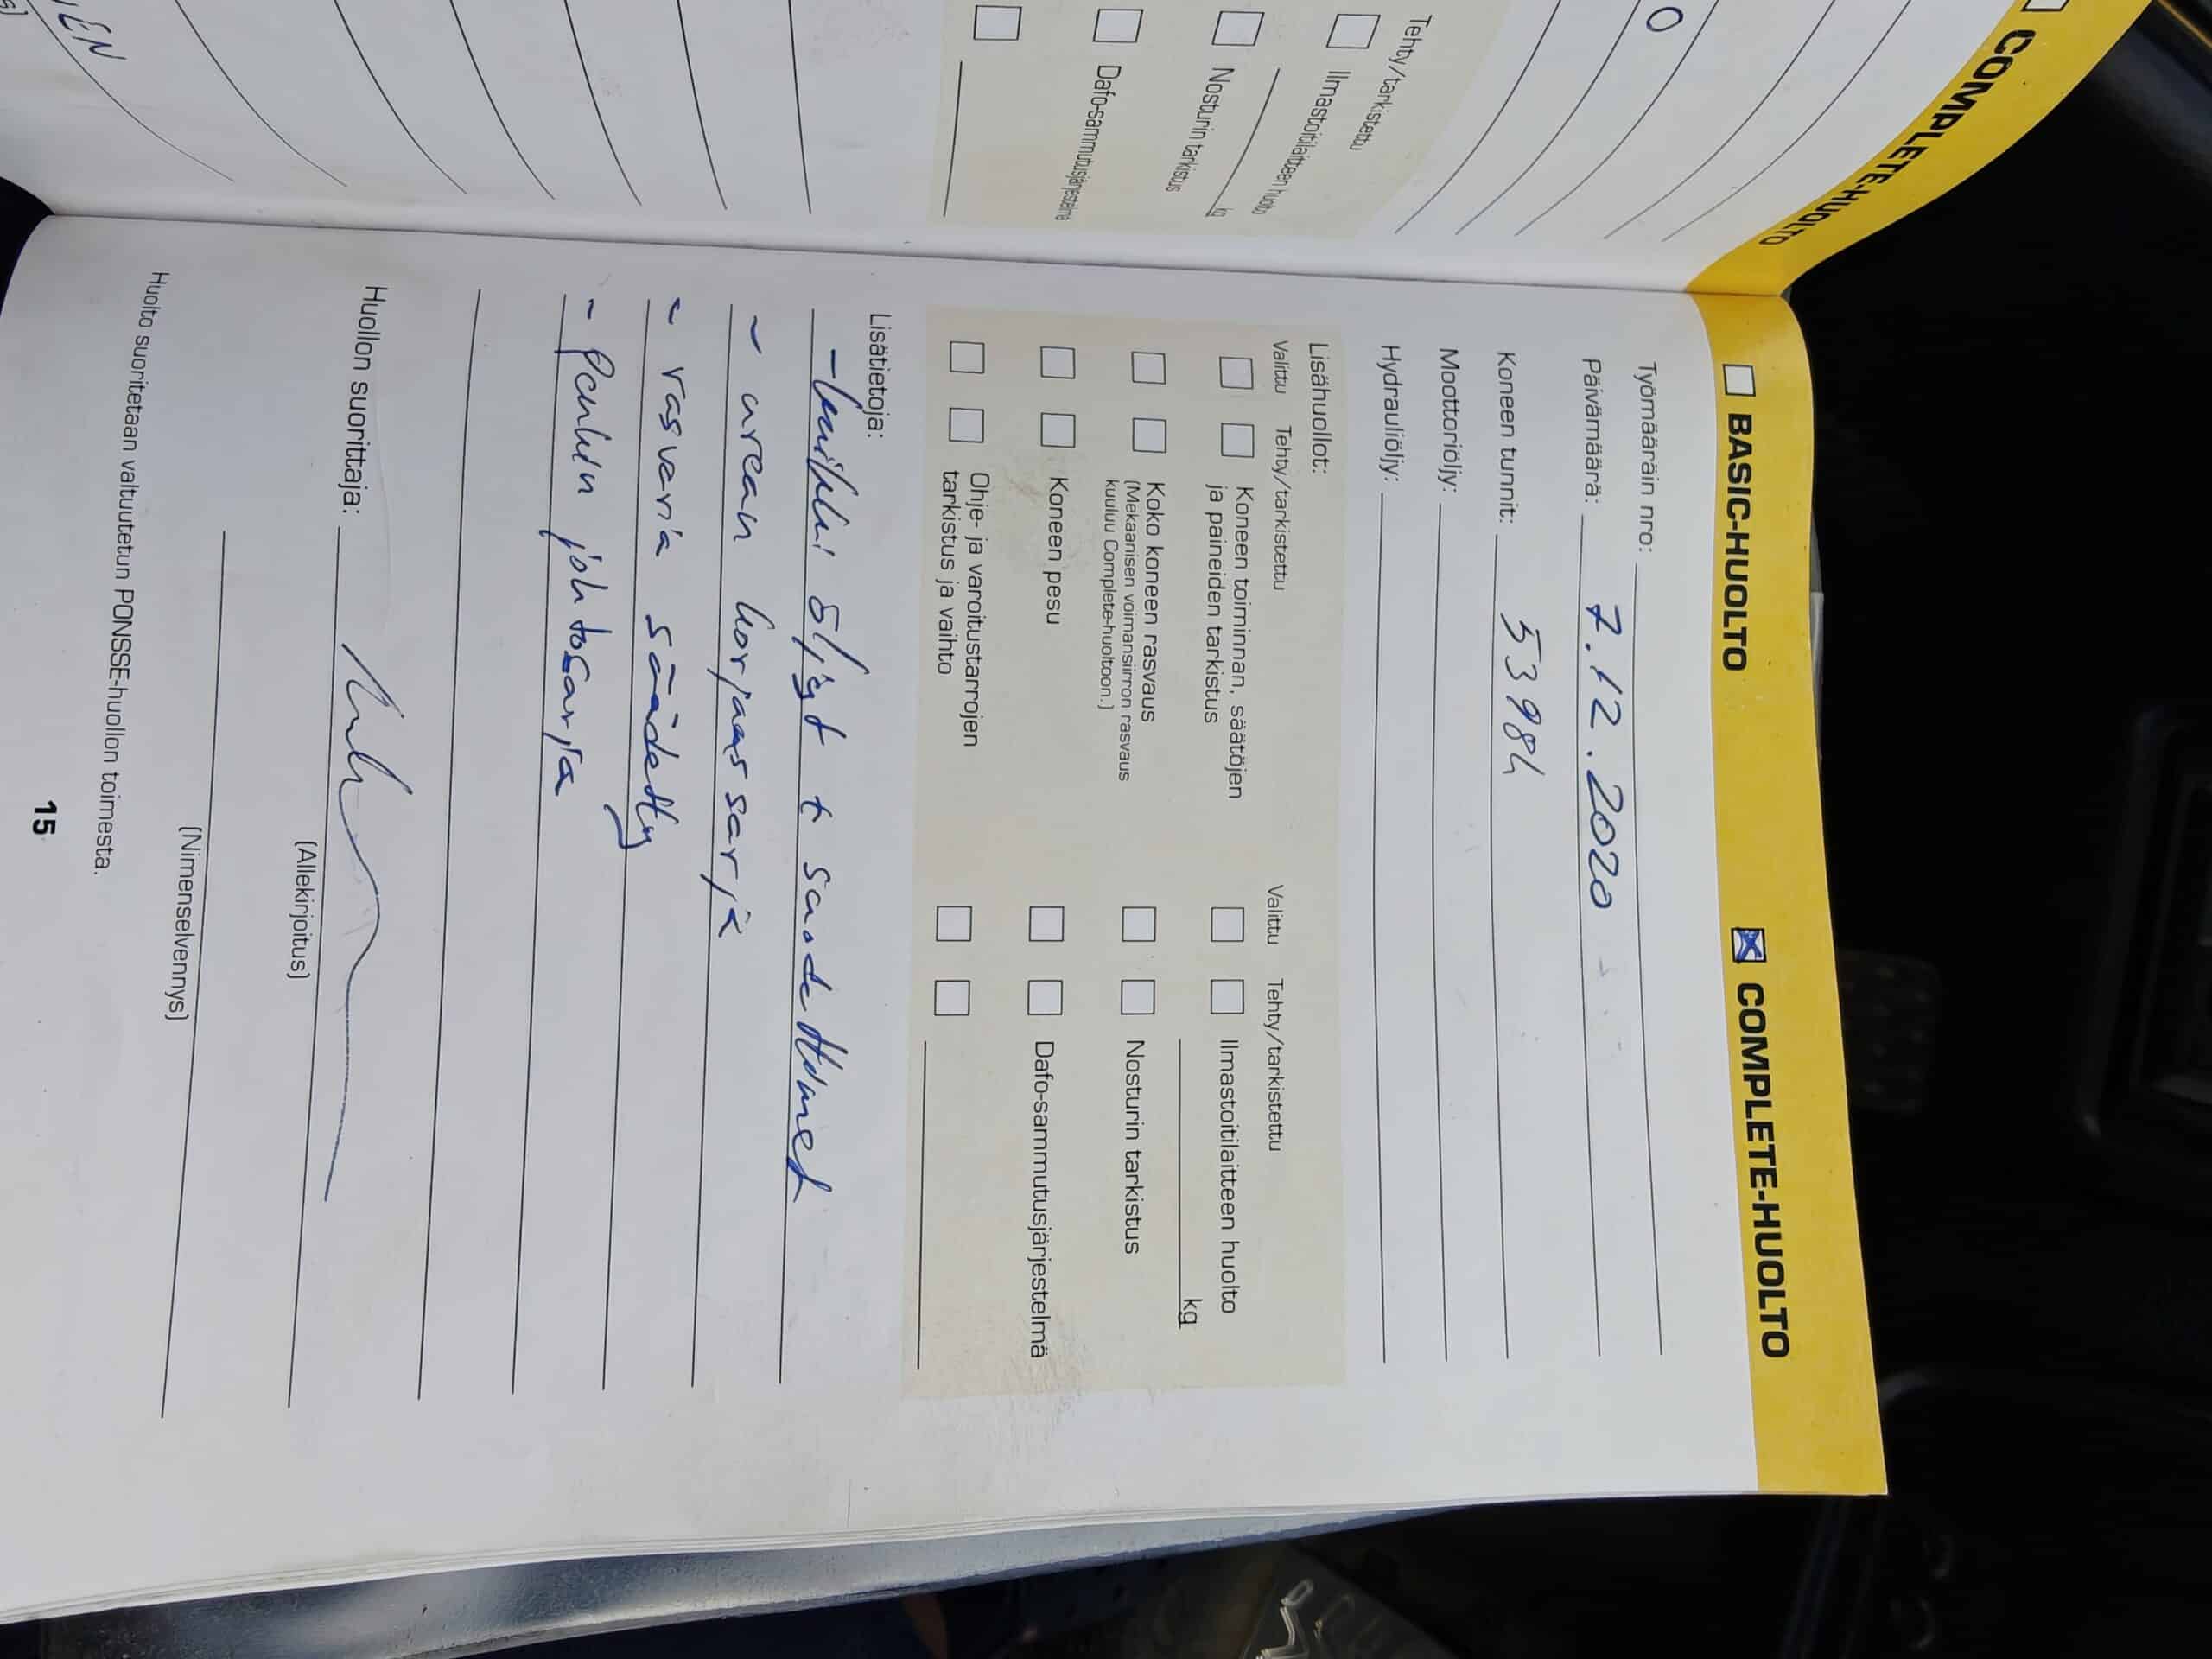 COMPLETE-HUOLTO
O
Tehty/tarkistettu
Ilmastoitilaitteen huolto
kg
Nosturin tarkistus
Dafo-sammutusjärjestelmä
BASIC-HUOLTO
COMPLETE-HUOLTO
Työmääräin nro:
Päivämäärä: 7.12.2020
Koneen tunnit: 5398h
Moottoriöljy:
Hydrauliöljy:
Lisähuollot:
Valittu Tehty/tarkistettu Valittu Tehty/tarkistettu
Koneen toiminnan, säätöjen
ja paineiden tarkistus
Ilmastoitilaitteen huolto
kg
Koko koneen rasvaus
(Mekaanisen voimansiirron rasvaus
kuuluu Complete-huoltoon.)
Nosturin tarkistus
Koneen pesu
Dafo-sammutusjärjestelmä
Ohje- ja varoitustarrojen
tarkistus ja vaihto
Lisätietoja:
- kaikki öljyt + suodattimet
- urean korjaus sarja
- rasvaria säädetty
- Pankin johtosarja
Huollon suorittaja:
(Allekirjoitus)
(Nimenselvennys)
Huolto suoritetaan valtuutetun PONSSE-huollon toimesta.
15